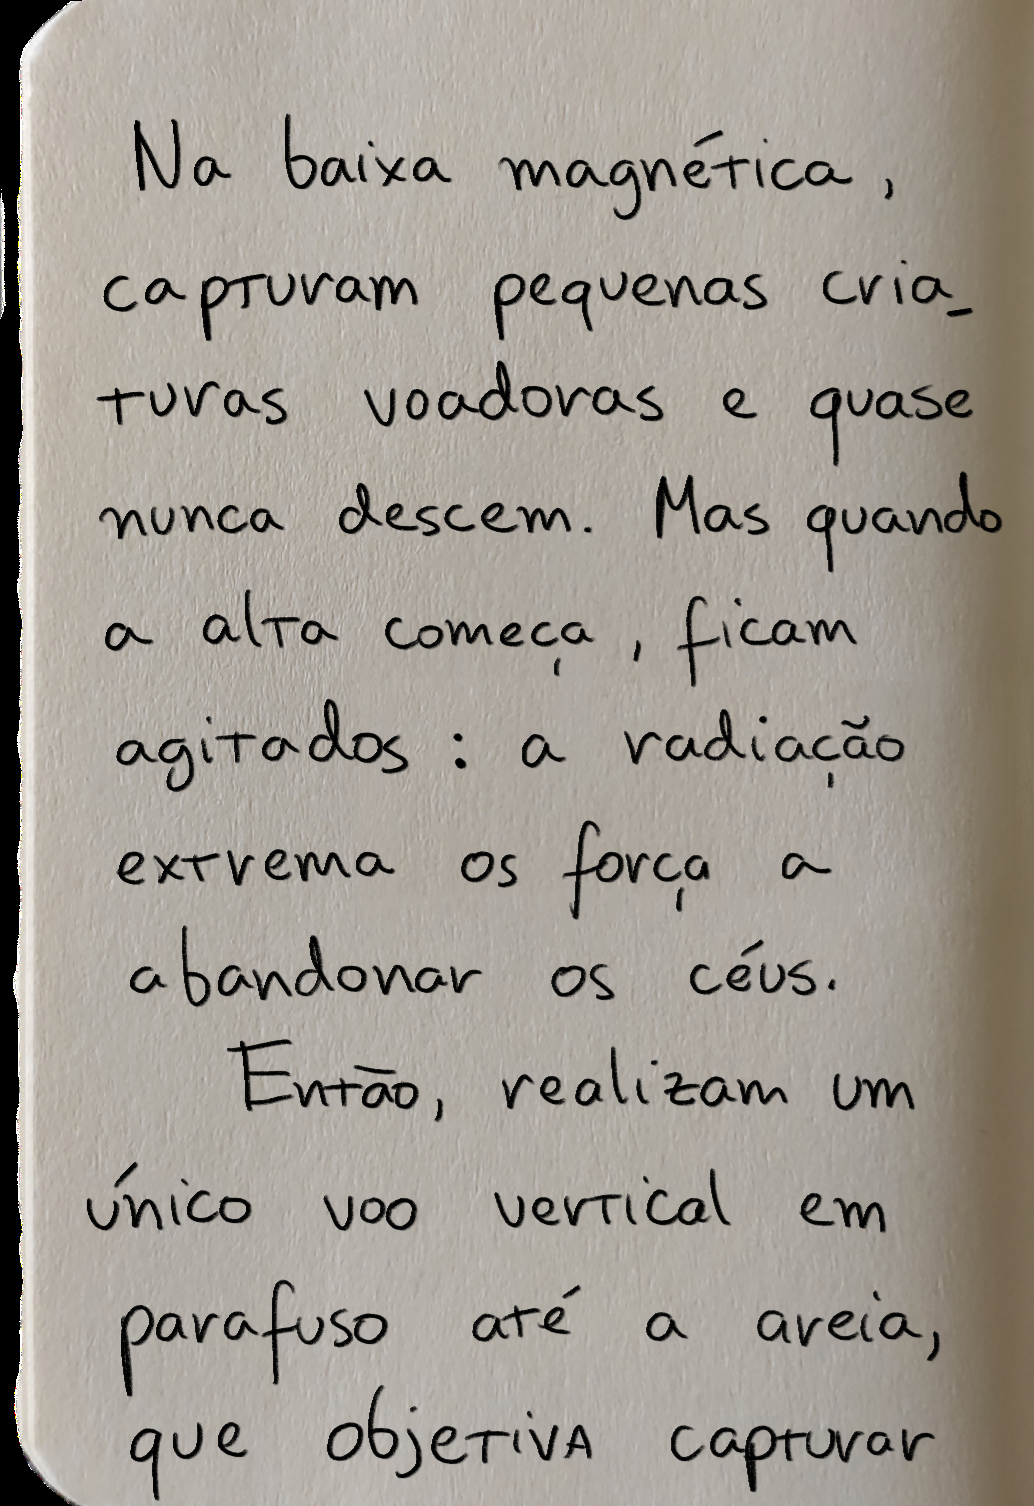 Na baixa magnética,
capturam pequenas cria-
turas voadoras e quase
nunca descem. Mas quando
a alta começa, ficam
agitados: a radiação
extrema os força a
abandonar os céus.
Então, realizam um
único voo vertical em
parafuso até a areia,
que objetiva capturar